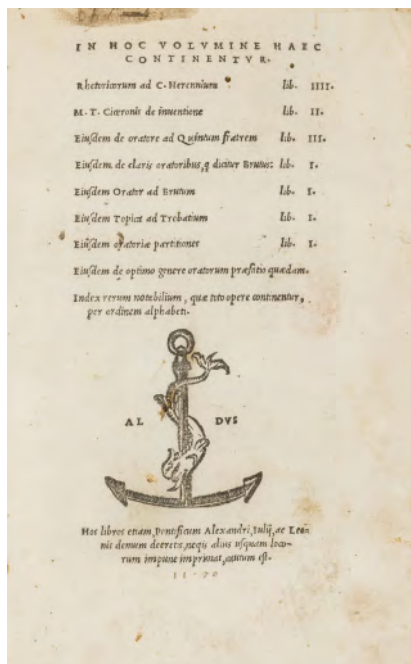 IN HOC VOLVMINE HAEC
CONTINENTVR.
Rhetoricorum ad C. Herennium lib. IIII.
M. T. Ciceronis de inuentione lib. II.
Eiusdem de oratore ad Quintum fratrem lib. III.
Eiusdem de claris oratoribus, q dicitur Brutus: lib. I.
Eiusdem Orator ad Brutum lib. I.
Eiusdem Topica ad Trebatium lib. I.
Eiusdem oratoriæ partitiones lib. I.
Eiusdem de optimo genere oratorum præfatio quædam.
Index rerum notabilium, quæ toto opere continentur,
per ordinem alphabeti.
AL DVS
Hos libros etiam, Pontificum Alexandri, Iulij, ac Leo
nis demum decretis, neqs alius usquam loco-
rum impune imprimat, cautum est.